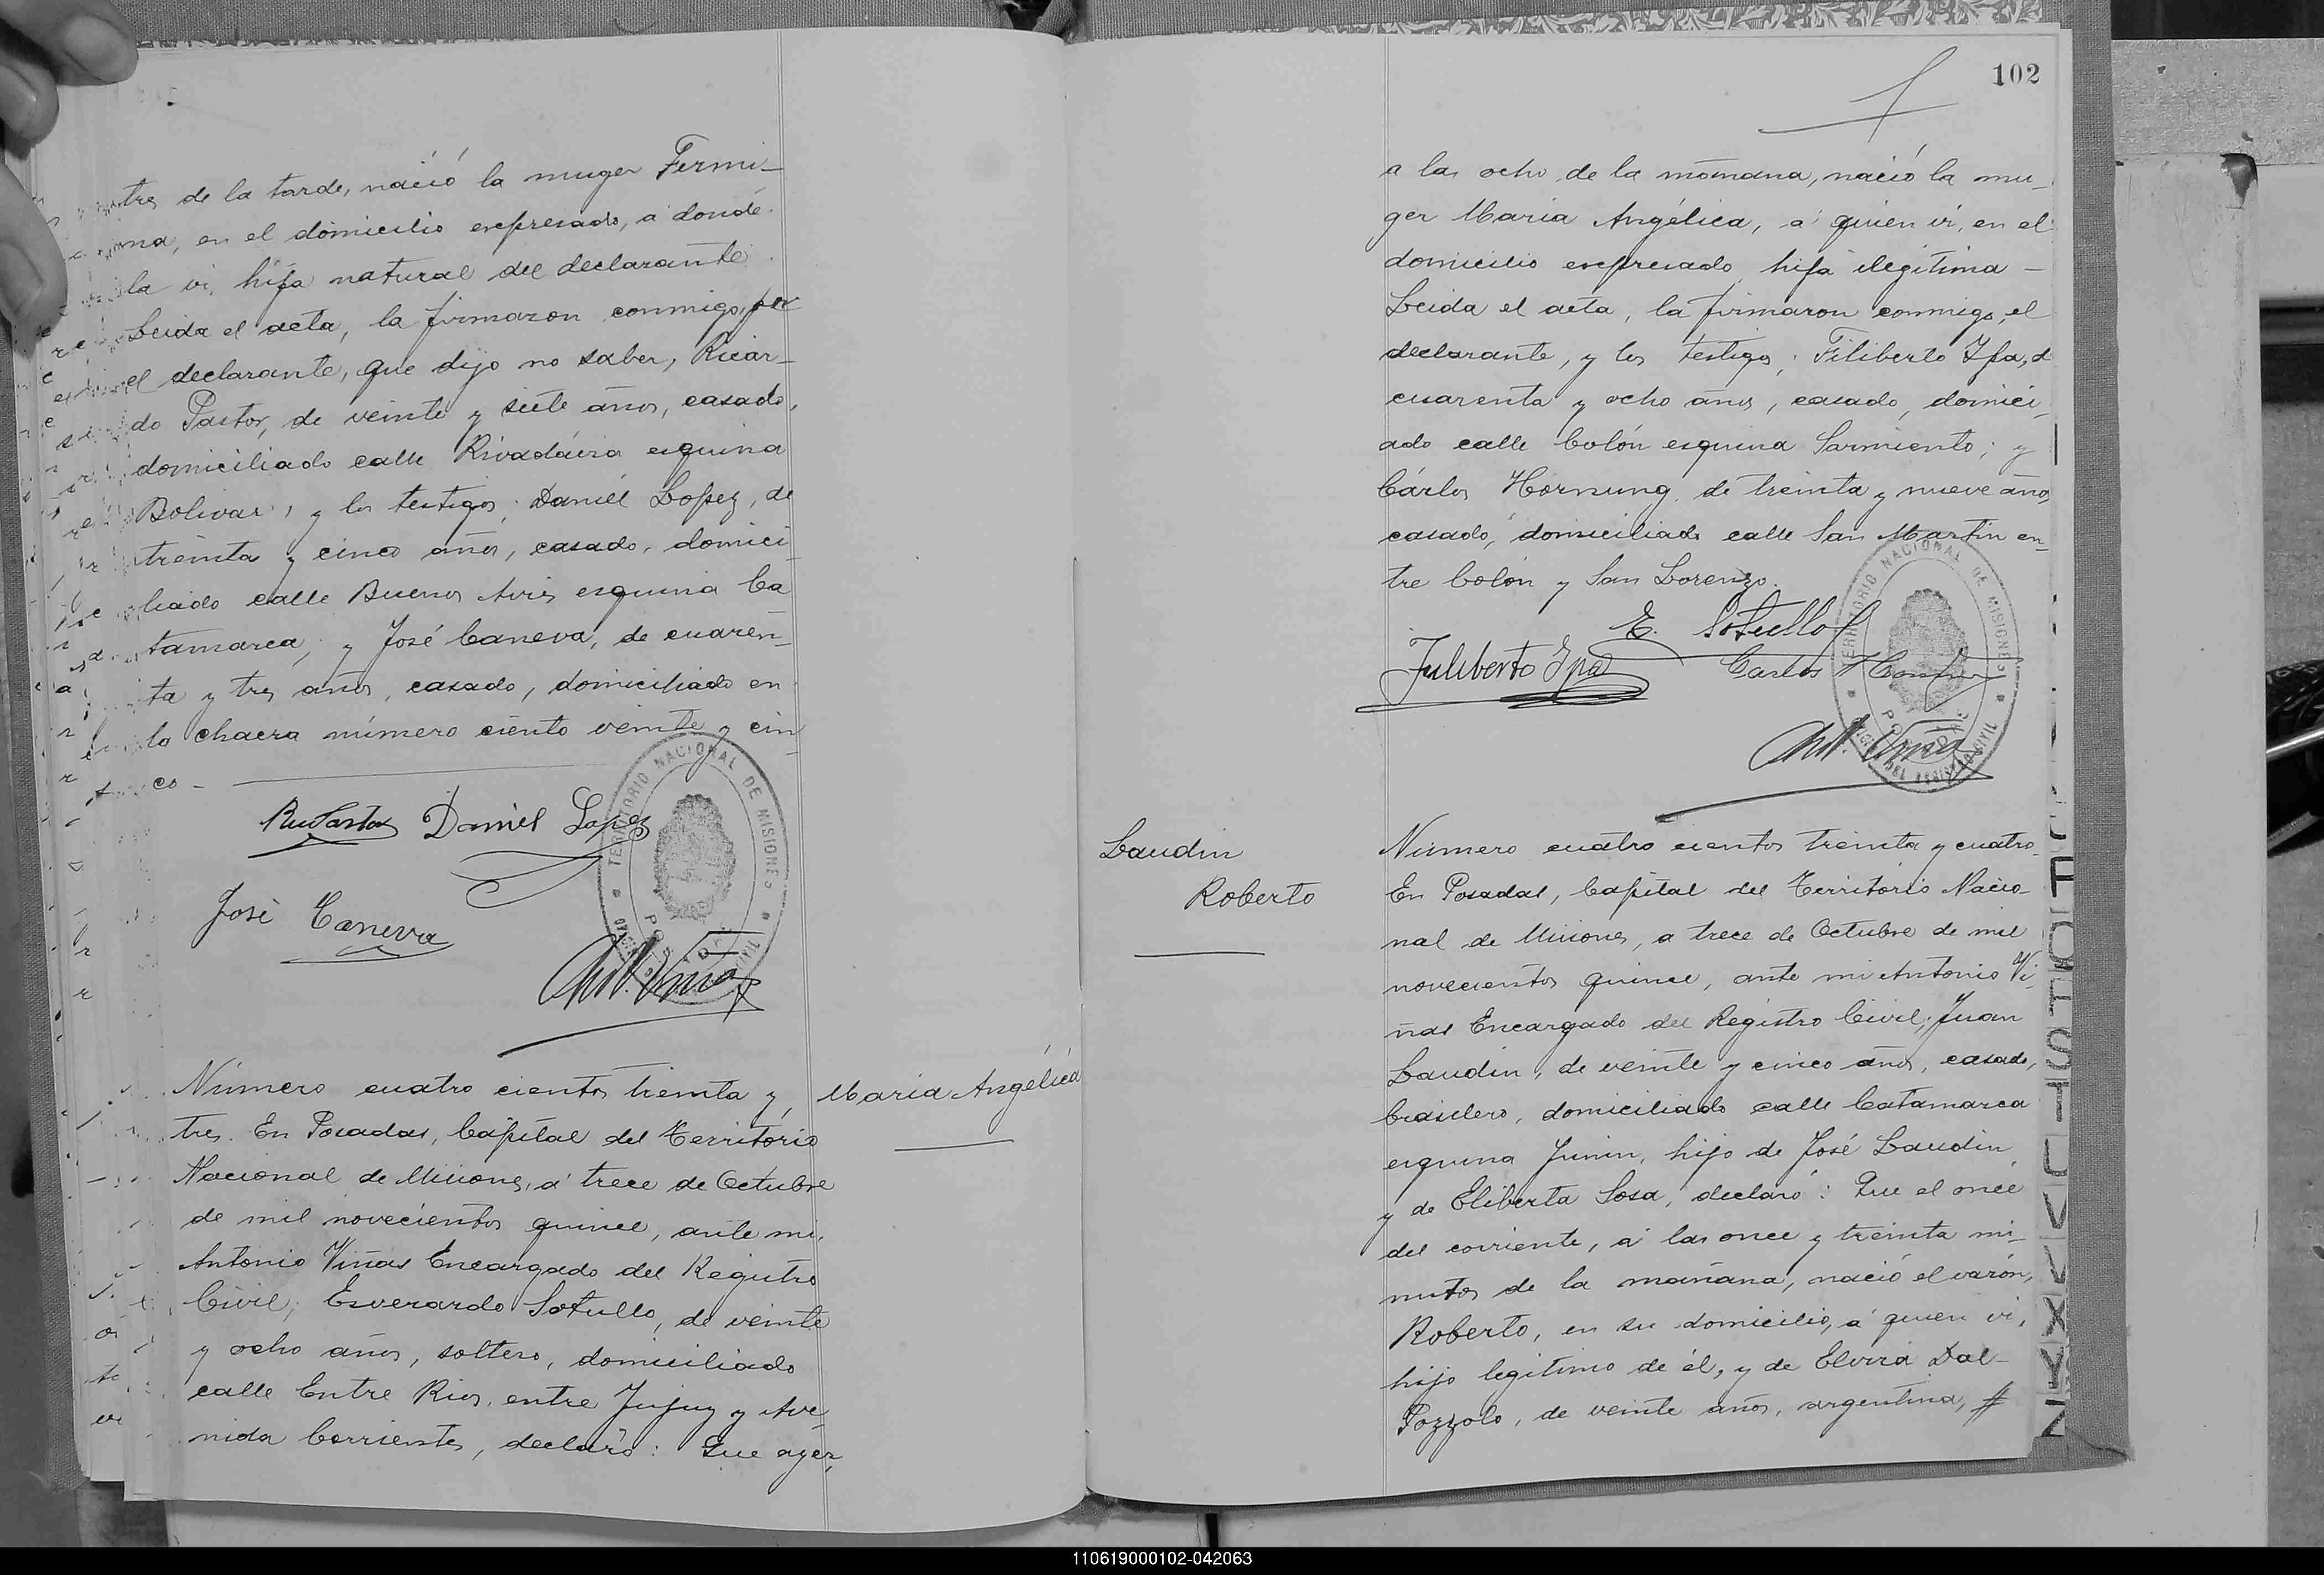 tres de la tarde, nació la muger Fermi-
na, en el domicilio expresado, a donde
la vi, hija natural del declarante.
Leida el acta, la firmaron conmigo, por
el declarante, que dijo no saber, Ricar-
do Pastor, de veinte y siete años, casado,
domiciliado calle Rivadavia esquina
Bolivar; y los testigos: Daniel Lopez, de
treinta y cinco años, casado, domici-
liado calle Buenos Aires esquina Ca
tamarca; y José Caneva, de cuaren-
ta y tres años, casado, domiciliado en
la chacra número ciento veinte y cin-
co -
Daniel Lopez
José Caneva
TERRITORIO NACIONAL DE MISIONES
POSADAS
Maria Angélica
Número cuatro cientos treinta y
tres. En Posadas, Capital del Territorio
Nacional de Misiones, a trece de Octubre
de mil novecientos quince, ante mi,
Antonio Viñas Encargado del Registro
Civil; Esverardo Sotullo, de veinte
y ocho años, soltero, domiciliado
calle Entre Rios, entre Jujuy y Ave
nida Corrientes, declaró: Que ayer,
102
a las ocho de la mañana, nació la mu-
ger Maria Angélica, a quien vi, en el
domicilio expresado, hija ilegitima -
Leida el acta, la firmaron conmigo, el
declarante, y los testigos: Filiberto Ifra, d
cuarenta y ocho años, casado, domici-
ado calle Colón esquina Sarmiento; y
Cárlos Hornung, de treinta y nueve años
casado, domiciliado calle San Martin en-
tre Colón y San Lorenzo.
E. Sotullo
Carlos
TERRITORIO NACIONAL DE MISIONES
REGISTRO CIVIL
POSADAS
Laudin
Roberto
Número cuatro cientos treinta y cuatro.
En Posadas, Capital del Territorio Nacio-
nal de Misiones, a trece de Octubre de mil
novecientos quince, ante mi Antonio Vi-
ñas Encargado del Registro Civil; Juan
Laudin, de veinte y cinco años, casado,
brasilero, domiciliado calle Catamarca
esquina Junin, hijo de José Laudin
y de Eliberta Sosa, declaró: Que el once
del corriente, a las once y treinta mi-
nutos de la mañana, nació el varón,
Roberto, en su domicilio, a quien vi,
hijo legitimo de él, y de Elvira Dal-
Pozzolo, de veinte años, argentina, #
110619000102-042063